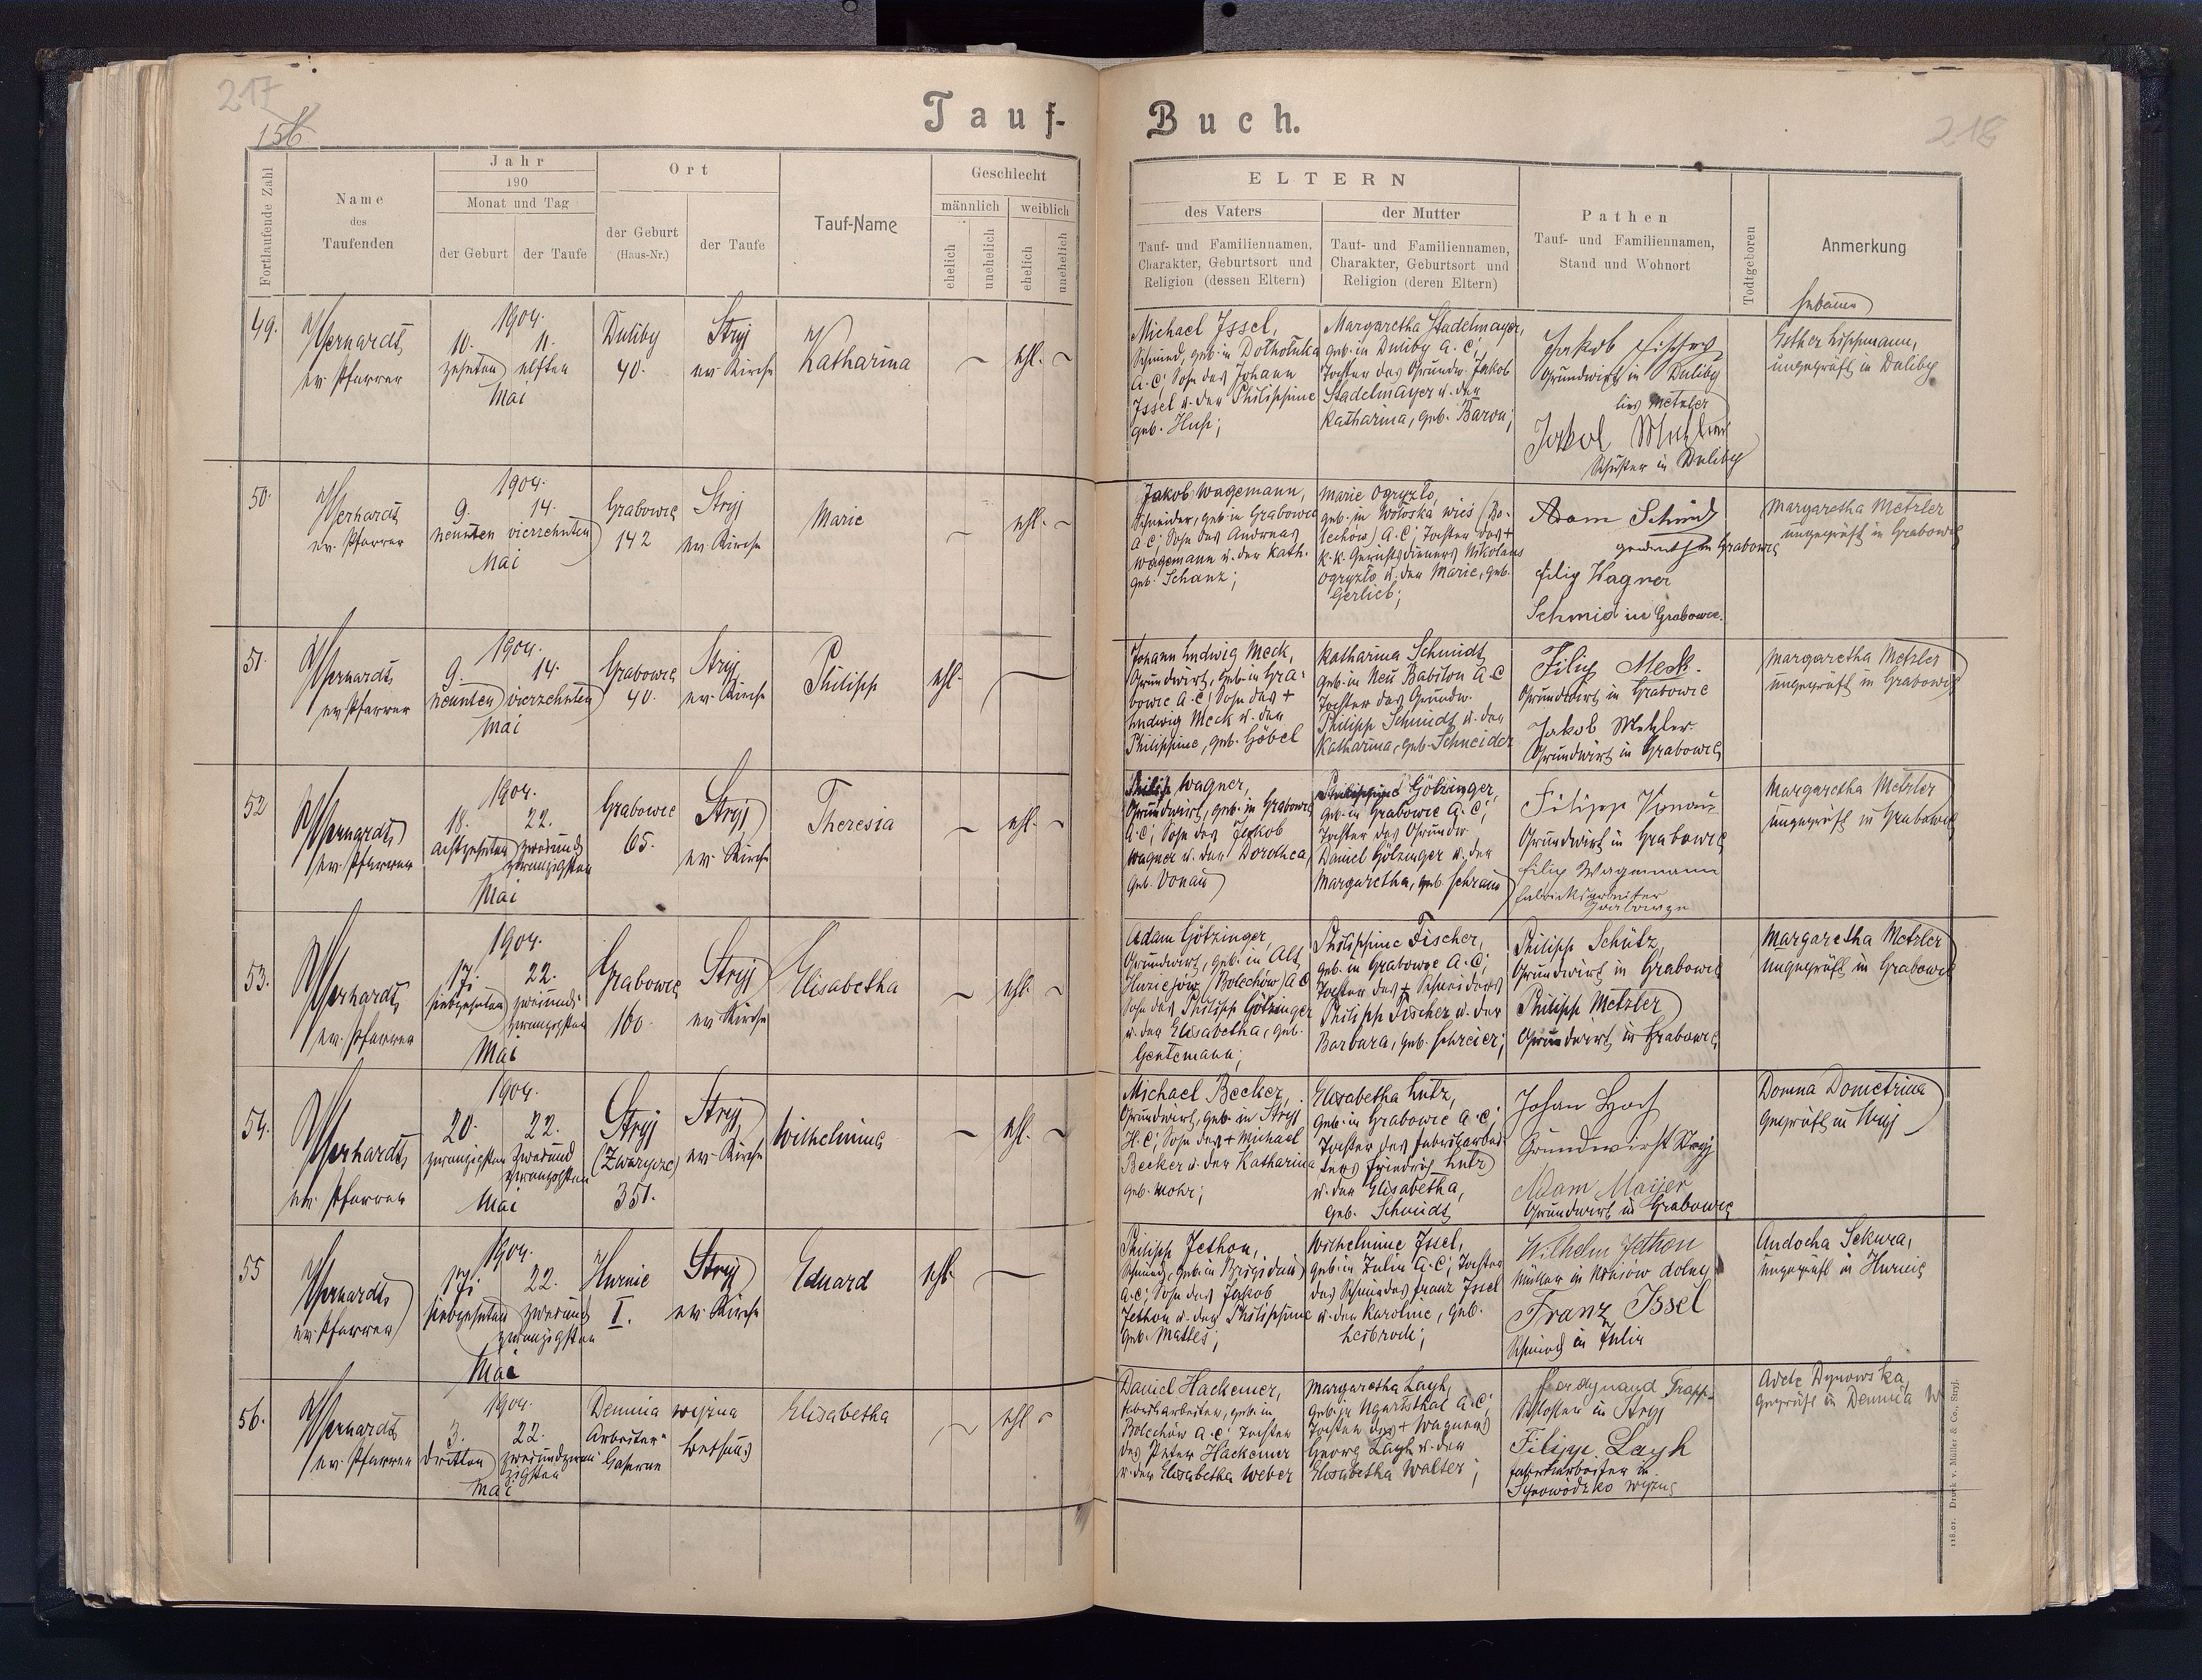 217
156
Tauf-
Buch.
218
Fortlaufende Zahl
Name
des
Taufenden
Jahr
190
Monat und Tag
der Geburt
der Taufe
Ort
der Geburt
(Haus-Nr.)
der Taufe
Tauf-Name
Geschlecht
männlich
weiblich
ehelich
unehelich
ehelich
unehelich
ELTERN
des Vaters
Tauf- und Familiennamen,
Charakter, Geburtsort und
Religion (dessen Eltern)
der Mutter
Tauf- und Familiennamen,
Charakter, Geburtsort und
Religion (deren Eltern)
Pathen
Tauf- und Familiennamen,
Stand und Wohnort
Todtgeboren
Anmerkung
Hebamme
49.
ev. Pfarrer
1904.
10. 11.
zehnten elften
Mai
Duliby
40.
Stryj
ev. Kirche
Katharina
ehl.
Michael Issel,
Schmied, geb. in
A. C; Sohn des Johann
Issel u. der Philippine
geb. Huß;
Margaretha Stadelmayer,
geb. in Duliby A. C;
Tochter des Grundw. Jakob
Stadelmayer u. der
Katharina, geb. Baron;
Jakob Fischer
Grundwirt in Duliby
lies Metzler
Jakob
Schuster in Duliby
Esther Lippmann,
ungeprüft in Duliby
50.
ev. Pfarrer
1904.
9. 14.
neunten vierzehnten
Mai
Grabowce
142
Stryj
ev. Kirche
Marie
ehl.
Jakob Wagemann,
Schneider, geb. in Grabowce
A C; Sohn des Andreas
Wagemann u. der Kath.
geb. Schanz;
Marie Ogryzlo,
geb. in Woloska wies (Bo-
lechów) A. C; Tochter des +
k. k. Gerichtsdieners Nikolaus
Ogryzlo u. der Marie, geb.
Gerlieb;
Adam Schmid
in Grabowce
Filip Wagner
Schmid in Grabowce.
Margaretha Metzler
ungeprüft in Grabowce
51.
ev. Pfarrer
1904.
9. 14.
neunten vierzehnten
Mai
Grabowce
40.
Stryj
ev. Kirche
Philipp
ehl.
Johann Ludwig Meck,
Grundwirt, geb. in Gra-
bowce A. C; Sohn des +
Ludwig Meck u. der
Philippine, geb. Göbel
Katharina Schmidt
geb. in Neu Babilon A. C
Tochter des Grundw.
Philipp Schmidt u. der
Katharina, geb. Schneider
Filip Meck.
Grundwirt in Grabowce
Jakob Metzler.
Grundwirt in Grabowce
Margaretha Metzler
ungeprüft in Grabowce
52
ev. Pfarrer
1904.
18. 22.
achtzehnten zweiund
zwanzigsten
Mai
Grabowce
65.
Stryj
ev. Kirche
Theresia
ehl.
Philipp Wagner,
Grundwirt, geb. in Grabowce
A. C; Sohn des Jakob
Wagner u. der Dorothea,
geb. Vonau
Philippine Götzinger,
geb. in Grabowce A. C;
Tochter des Grundw.
Daniel Götzinger u. der
Margaretha, geb. Schramm
Filipp Vonau
Grundwirt in Grabowce
Filip Wagemann
Fabricksarbeiter
Margaretha Metzler
ungeprüft in Grabowce
53.
ev. Pfarrer
1904.
17. 22.
siebzehnten zweiund-
zwanzigsten
Mai
Grabowce
100.
Stryj
ev. Kirche
Elisabetha
ehl.
Adam Götzinger,
Grundwirt, geb. in Alt
(Bolechów) A C
Sohn des Philipp Götzinger
u. der Elisabetha, geb.
Gentemann;
Philippine Fischer,
geb. in Grabowce A. C;
Tochter des + Schneiders
Philipp Fischer u. der
Barbara, geb. Schreier;
Philipp Schütz,
Grundwirt in Grabowce
Philipp Metzler
Grundwirt in Grabowce
Margaretha Metzler
ungeprüft in Grabowce
54.
ev. Pfarrer
1904.
20. 22.
zwanzigsten zweiund
zwanzigsten
Mai
Stryj
351.
Stryj
ev. Kirche
Wilhelmina
ehl.
Michael Becker,
Grundwirt, geb. in Stryj
H. C; Sohn des + Michael
Becker u. der Katharina
geb. Mohr;
Elisabetha Lutz,
geb. in Grabowce A. C;
Tochter des Fabriksarbei-
ters Friedrich Lutz
u. der Elisabetha,
geb. Schmidt
Johan
Grundwirt Stryj
Adam Maijer
Grundwirt in Grabowce
Domna Dometrina
geprüft in Stryj
55
ev. Pfarrer
1904.
17. 22.
siebzehnten zweiund
zwanzigsten
Mai
Hurnie
I.
Stryj
ev. Kirche
Eduard
ehl.
Philipp Jethon,
Schmied, geb. in Brigidau
A. C; Sohn des Jakob
Jethon u. der Philippine
geb. Mattes;
Wilhelmine Issel,
geb. in Julin A. C; Tochter
des Schmiedes Franz Issel
u. der Karoline, geb.
Leibrock;
Wilhelm Jethon
Müller in dolne
Franz Issel
Schmied in Julin
Andocha Sekura,
ungeprüft in Hurnie
56.
ev. Pfarrer
1904.
3. 22.
dritten zweiundzwan-
zigsten
Mai
Demnia wyżna
Arbeiter-
Kaserne
Bethaus
Elisabetha
ehl
Daniel Hackemer,
Fabriksarbeiter, geb. in
Bolechów A. C; Tochter
des Peter Hackemer
u. der Elisabetha Weber
Margaretha Layh,
geb. in Ugartsthal A. C;
Tochter des + Wagners
Georg Layh u. der
Elisabetha Walter;
Ferdynand Trapp
Schlosser in Stryj
Filipp Layh
Fabriksarbeiter in
wyżne
Adele Dynowska,
geprüft in Demnia W
118.01. Druck v. Müller & Co., Stryj.